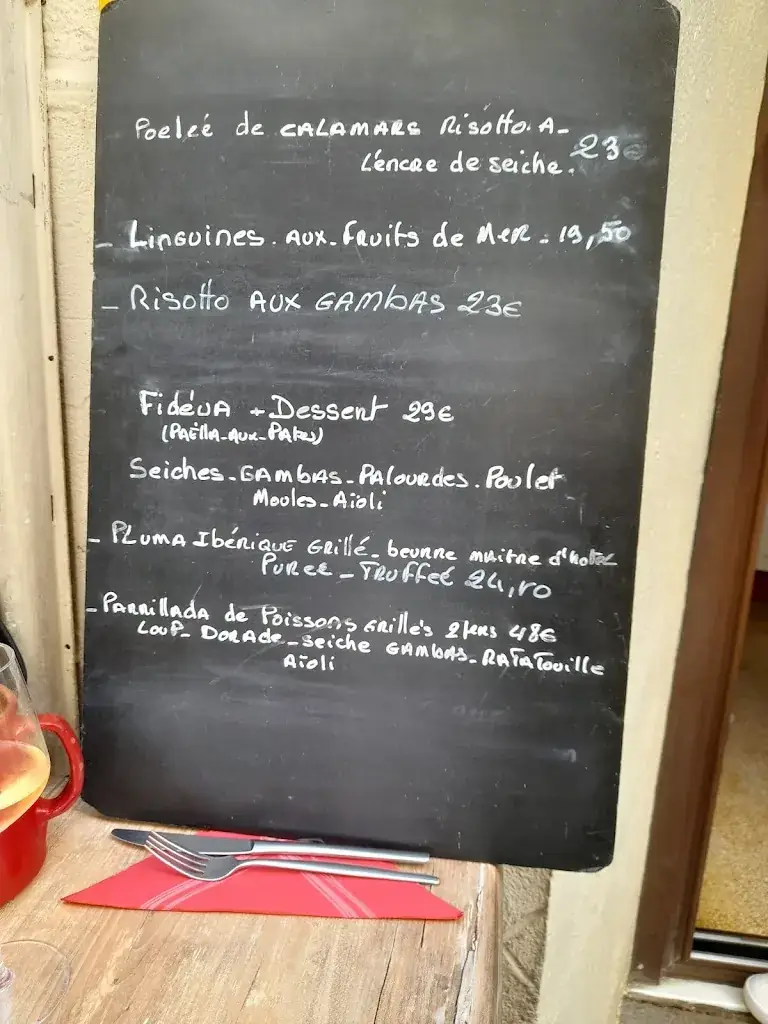 Poeleé de CALAMARS Risotto. A-
L'encre de seiche. 23€
- Linguines. AUX. fruits de MER - 19,50
- Risotto AUX GAMBAS 23€
Fidéua + Dessent 29€
(PAËlla-Aux-Pates)
Seiches-GAMBAS-PAlourdes.Poulet
Moules-Aïoli
- PLUMA Ibérique Grillé - beurre maitre d'hotel
Puree - Truffeé 24,50
- PARRillADA de Poissons Grillés 2 pers 48€
Loup- DORAde - seiche GAMbAS - RATATouille
Aïoli